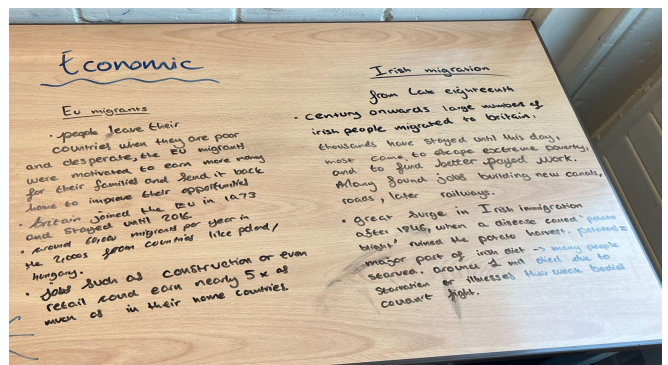 Economic
Eu migrants
· people leave their
countries when they are poor
and desperate, the EU migrants
were motivated to earn more money
for their families and send it back
home to improve their opportunities
· Britain joined the EU in 1973
and stayed until 2016.
· around migrants per year in
the 2,000s from countries like poland/
hungary.
· jobs such as construction or even
retail could earn nearly 5x as
much as in their home countries.
Irish migration
from late eighteenth
· century onwards large number of
irish people migrated to britain.
thousands have stayed until this day,
most came to escape extreme poverty,
and to find better payed work.
Many found jobs building new canals,
roads, later railways.
· great surge in Irish immigration
after 1846, when a disease called 'potato
blight' ruined the potato harvest. potatoes =
major part of irish diet -> many people
starved. around 1 mil died due to
starvation or illnesses their weak bodies
couldn't fight.